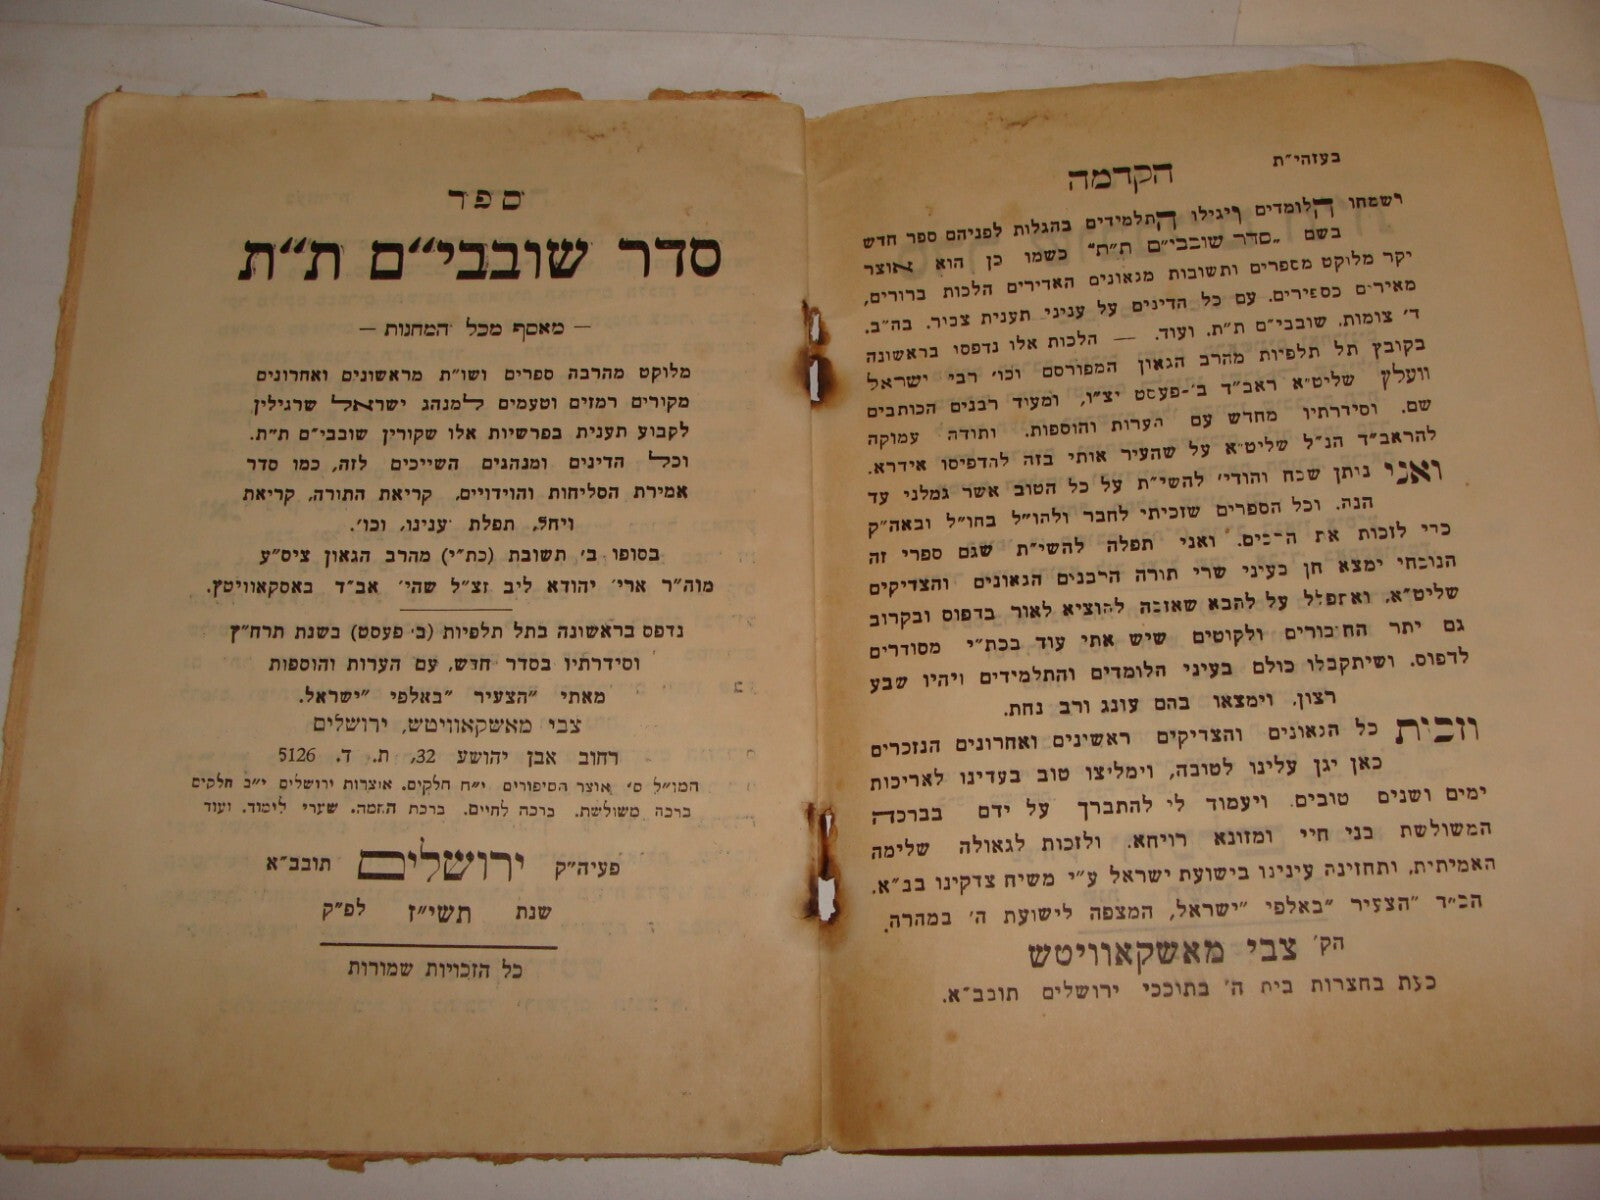 ספר
סדר שובבי״ם ת״ת
— מאסף מכל המחנות —
מלוקט מהרבה ספרים ושו״ת מראשונים ואחרונים
מקורים רמזים וטעמים למנהג ישראל שרגילין
לקבוע תענית בפרשיות אלו שקורין שובבי״ם ת״ת.
וכל הדינים ומנהגים השייכים לזה, כמו סדר
אמירת הסליחות והוידויים, קריאת התורה, קריאת
ויחל, תפלת ענינו, וכו׳.
בסופו ב׳ תשובת (כת״י) מהרב הגאון ציס״ע
מוה״ר ארי׳ יהודא ליב זצ״ל שהי׳ אב״ד באסקאוויטץ.
נדפס בראשונה בתל תלפיות (ב׳ פעסט) בשנת תרח״ץ
וסידרתיו בסדר חדש, עם הערות והוספות
מאתי ״הצעיר ״באלפי ״ישראל.
צבי מאשקאוויטש, ירושלים
רחוב אבן יהושע 32, ת. ד. 5126
המו״ל ס׳ אוצר הסיפורים י״ח חלקים. אוצרות ירושלים י״ב חלקים
ברכה משולשת. ברכה לחיים. ברכת חמה. שערי לימוד. ועוד
פעיה״ק ירושלים תובב״א
שנת תשי״ז לפ״ק
כל הזכויות שמורות
בעזהי״ת
הקדמה
ושמחו הלומדים ויגילו התלמידים בהגלות לפניהם ספר חדש
בשם „סדר שובבי״ם ת״ת״ כשמו כן הוא אוצר
יקר מלוקט מספרים ותשובות מגאונים האדירים הלכות ברורים,
מאירים כספירים. עם כל הדינים על עניני תענית צבור. בה״ב.
ד׳ צומות. שובבי״ם ת״ת. ועוד. — הלכות אלו נדפסו בראשונה
בקובץ תל תלפיות מהרב הגאון המפורסם וכו׳ רבי ישראל
וועלץ שליט״א ראב״ד ב׳-פעסט יצ״ו, ומעוד רבנים הכותבים
שם. וסידרתיו מחדש עם הערות והוספות. ותודה עמוקה
להראב״ד הנ״ל שליט״א על שהעיר אותי בזה להדפיסו אידרא.
ואני ניתן שבח והודי׳ להשי״ת על כל הטוב אשר גמלני עד
הנה. וכל הספרים שזכיתי לחבר ולהו״ל בחו״ל ובאה״ק
כדי לזכות את הרבים. ואני תפלה להשי״ת שגם ספרי זה
הנוכחי ימצא חן בעיני שרי תורה הרבנים הגאונים והצדיקים
שליט״א. ואתפלל על להבא שאזכה להוציא לאור בדפוס ובקרוב
גם יתר החיבורים ולקוטים שיש אתי עוד בכת״י מסודרים
לדפוס. ושיתקבלו כולם בעיני הלומדים והתלמידים ויהיו שבע
רצון. וימצאו בהם עונג ורב נחת.
וזכית כל הגאונים והצדיקים ראשינים ואחרונים הנזכרים
כאן יגן עלינו לטובה, וימליצו טוב בעדינו לאריכות
ימים ושנים טובים. ויעמוד לי להתברך על ידם בברכה
המשולשת בני חיי ומזונא רויחא. ולזכות לגאולה שלימה
האמיתית, ותחזינה עינינו בישועת ישראל ע״י משיח צדקינו בב״א.
הכ״ד ״הצעיר ״באלפי ״ישראל, המצפה לישועת ה׳ במהרה.
הק׳ צבי מאשקאוויטש
כעת בחצרות בית ה׳ בתוככי ירושלים תובב״א.